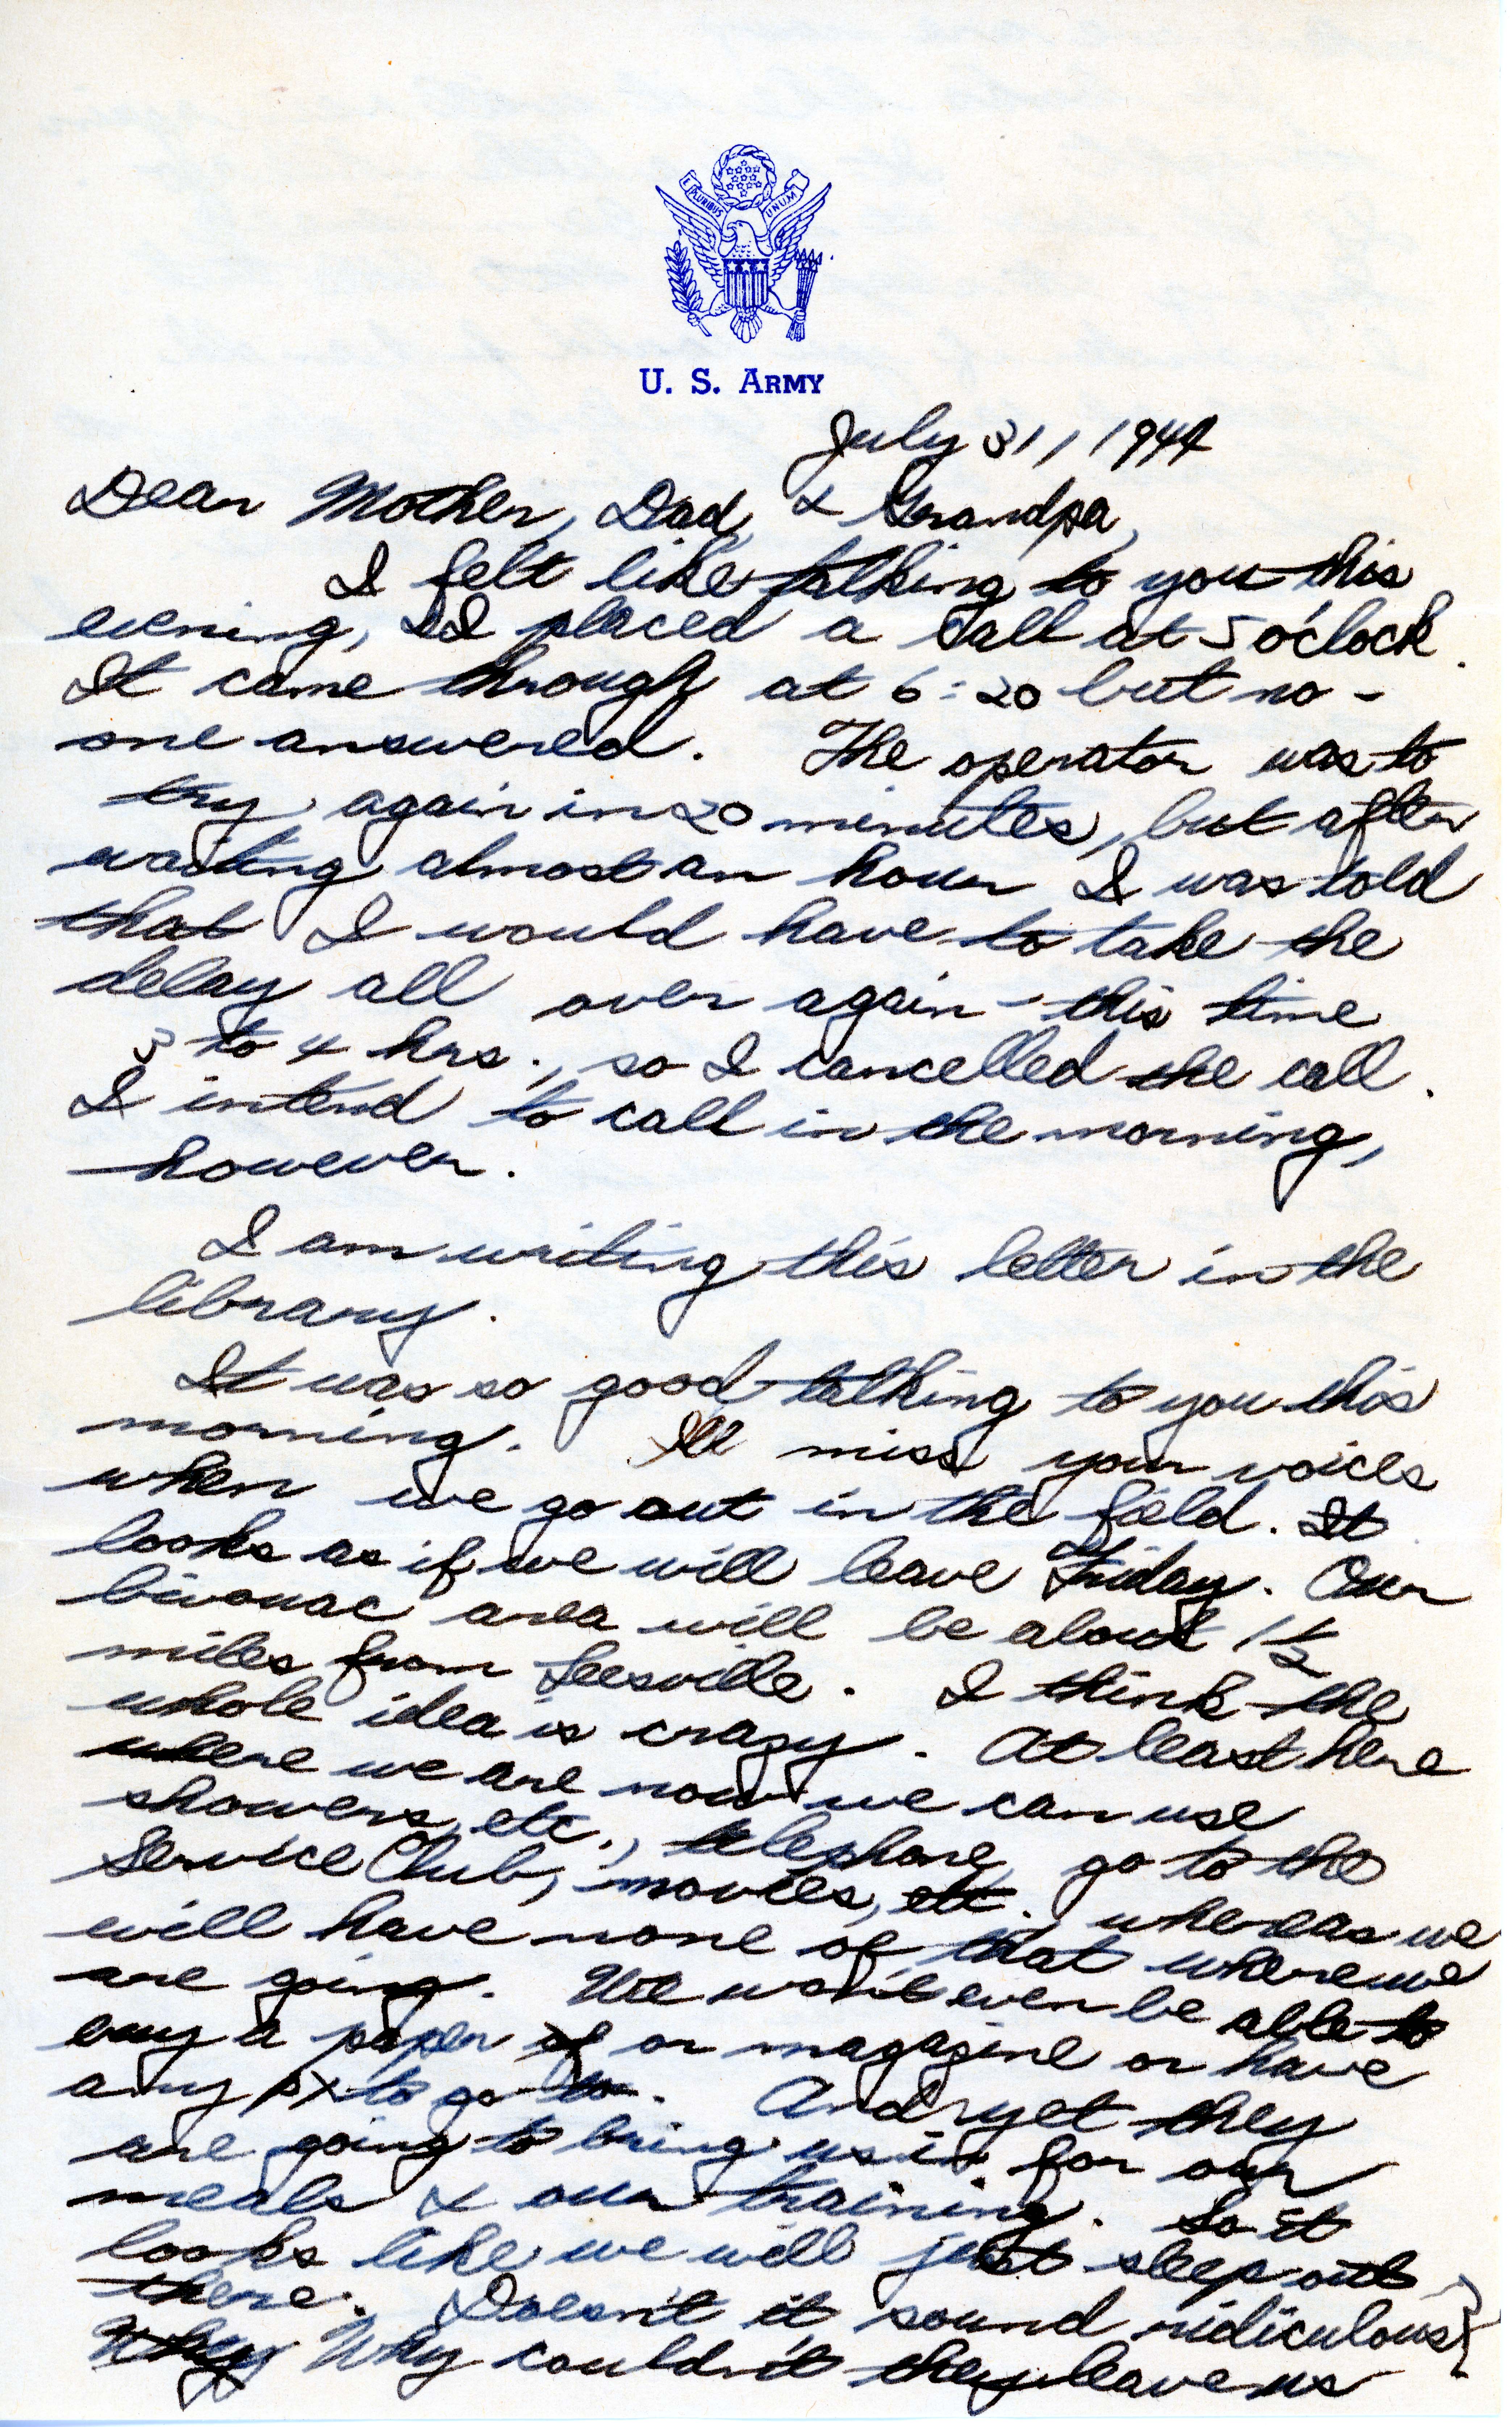 E PLURIBUS UNUM
U. S. ARMY
July 31, 1944
Dear Mother, Dad, & Grandpa,
I felt like talking to you this
evening, & I placed a call at 5 o'clock.
It came through at 6:20 but no-
one answered. The operator was to
try again in 20 minutes, but after
waiting almost an hour I was told
that I would have to take the
delay all over again - this time
3 to 4 hrs., so I cancelled the call.
I intend to call in the morning,
however.
I am writing this letter in the
library.
It was so good talking to you this
morning. I'll miss your voices
when we go out in the field. It
looks as if we will leave Friday. Our
bivouac area will be about 1 1/2
miles from Leesville. I think the
whole idea is crazy. At least here
where we are now we can use
showers, etc., telephone, go to the
Service Club, movies, etc. whereas we
will have none of that where we
are going. We won't even be able to
buy a paper or magazine or have
any PX to go to. And yet they
are going to bring us in for our
meals & our training. So it
looks like we will just sleep out
there. Doesn't it sound ridiculous?
Why Why couldn't they leave us